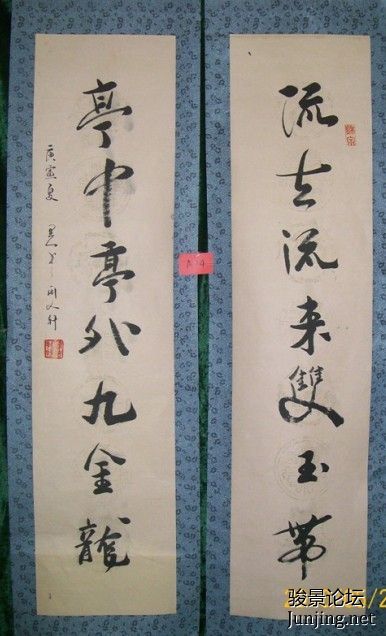 流去流来雙玉帶
亭中亭外九金龍
庚寅夏
A14
骏景论坛
Junjing.net